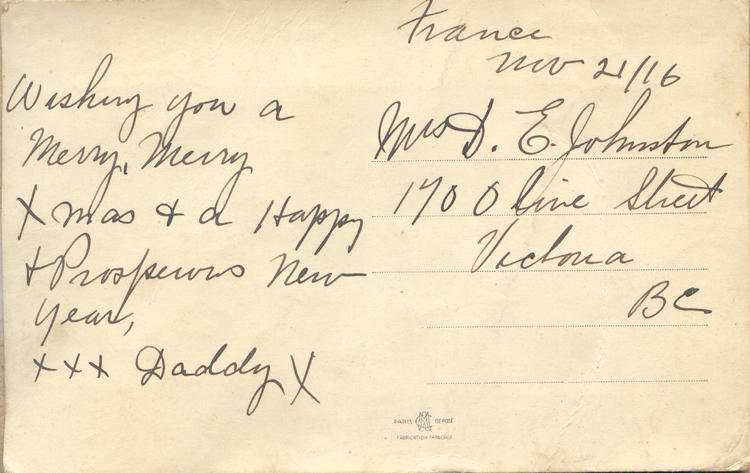 France
Nov 21/16
Wishing you a
Merry, Merry
Xmas & a Happy
& Prosperous New
Year,
xxx Daddy X
Mrs D. E. Johnston
170 Olive Street
Victoria
BC
DÉPOSÉ
FABRICATION FRANÇAISE